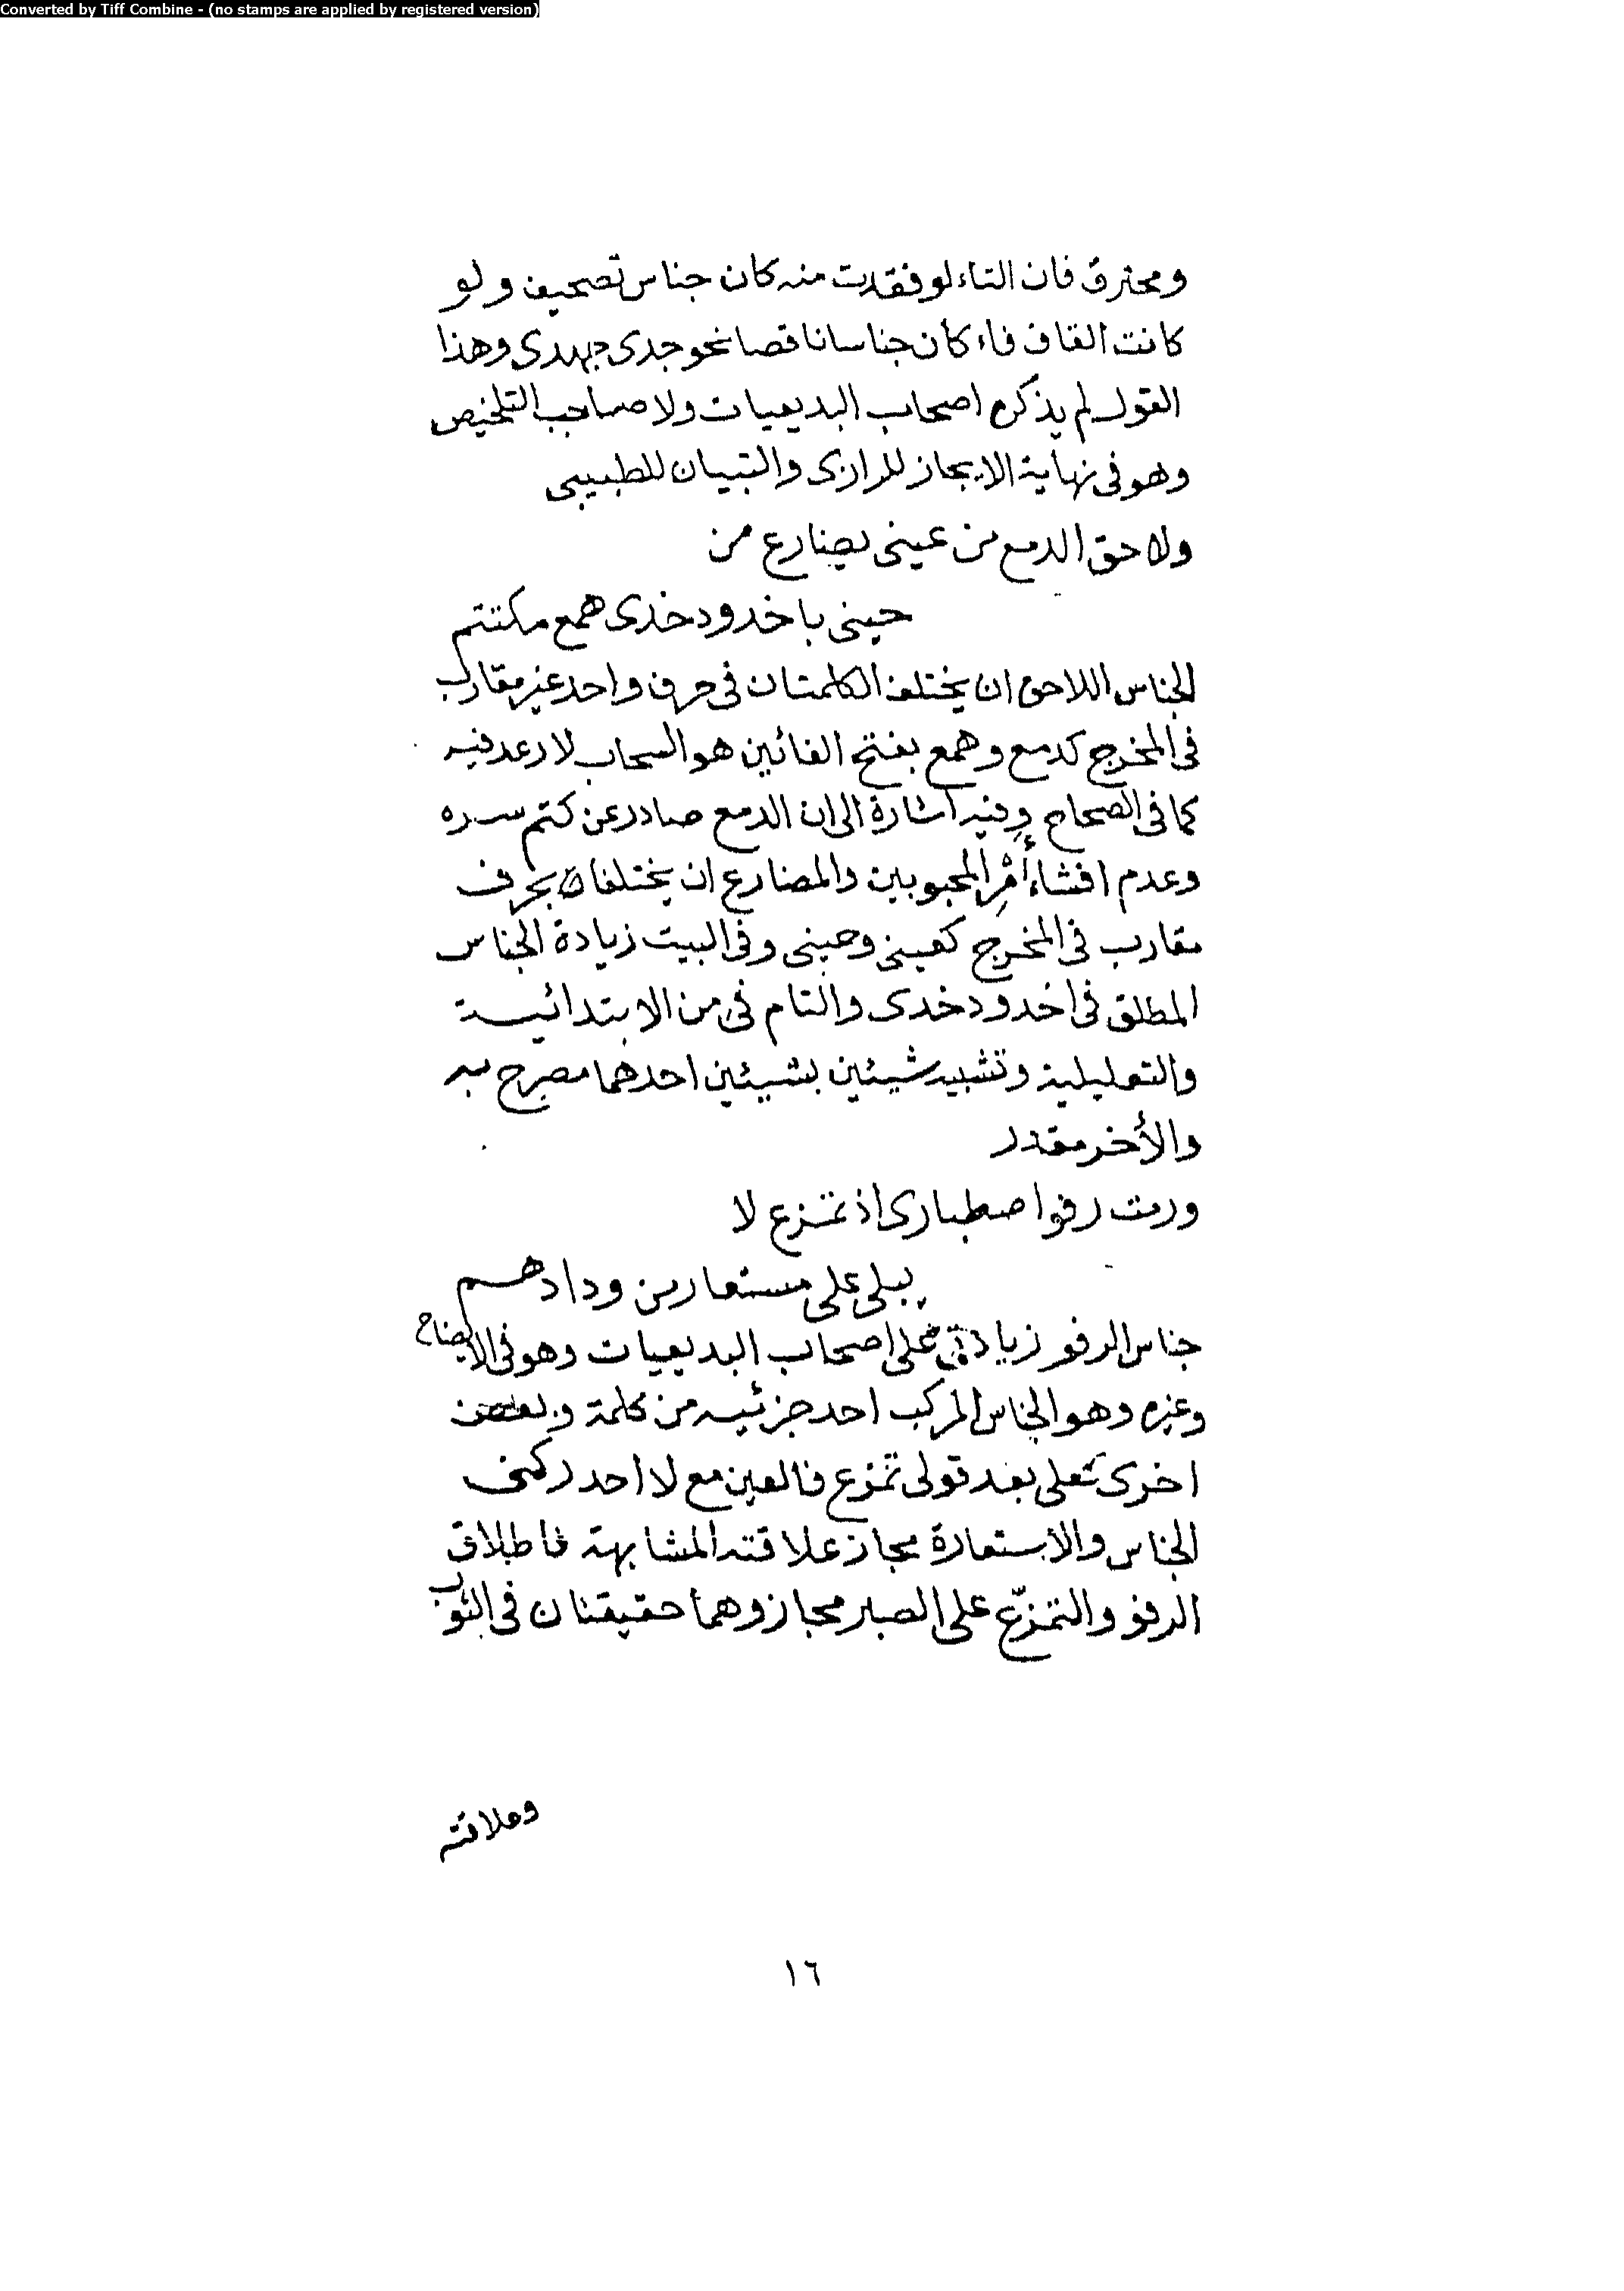 Converted by Tiff Combine - (no stamps are applied by registered version)
ومحترق فان التاء لو فقدت منه كان جناس تصحيف ولو
كانت القاف فاء كان جناسا ناقصا نحو جدى جهدى وهذا
القول لم يذكره اصحاب البديعيات ولا صاحب التلخيص
وهو فى نهاية الايجاز للرازى والتبيان للطيبى
ولاحق الدمع من عينى يضارع من
حينى باخدود خدى همع مكتتم
الجناس اللاحق ان يختلف الكلمتان فى حرف واحد غير مقارب
فى المخرج كدمع وهمع بفتح الفائين هو السحاب لا رعد فيه
كما فى الصحاح وفيه اشارة الى ان الدمع صادر عن كتم سره
وعدم افشاء أمْرِ المحبوبين والمضارع ان يختلفا بحرف
مقارب فى المخرج كعينى وحينى وفى البيت زيادة الجناس
المطلق فى اخدود خدى والتام فى من الابتدائية
والتعليلية وتشبيه شيئين بشيئين احدهما مصرح به
والأخر مقدر
ورمت رفوا صطبارى اذ تمزع لا
يبلى على مستعار من ودادهم
جناس الرفو زيادتى على اصحاب البديعيات وهو فى الايضاح
وغيره وهو الجناس المركب احد جزئيه من كلمة وبعض
اخرى كعلى بعد قولى تمزع فالعين مع لا احد ركنى
الجناس والاستعارة مجاز علاقته المشابهة فاطلاق
الرفو والتمزّع على الصبر مجاز وهما حقيقتان فى الثوب
وعلاقته
١٦